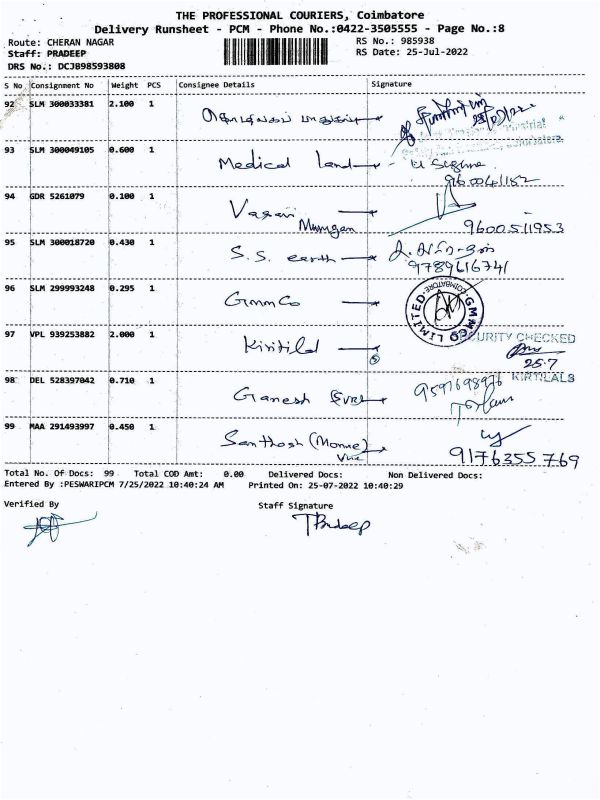 THE PROFESSIONAL COURIERS, Coimbatore
Delivery Runsheet - PCM - Phone No.:0422-3505555 - Page No.:8
Route: CHERAN NAGAR RS No.: 985938
Staff: PRADEEP RS Date: 25-Jul-2022
DRS No.: DCJB98593808
S No Consignment No Weight PCS Consignee Details Signature
92 SLM 300033381 2.100 1
93 SLM 300049105 0.600 1 Medical land
94 GDR 5261079 0.100 1 Vasan
Murugan 9600511953
95 SLM 300018720 0.430 1 S.S. earth
9789616741
96 SLM 299993248 0.295 1 GmmCo GMMCO LIMITED COIMBATORE
97 VPL 939253882 2.000 1 Kiritilal SECURITY CHECKED
25.7
KIRTILALS
98 DEL 528397042 0.710 1 Ganesh 9597698976
99 MAA 291493997 0.450 1 Santhosh
9176355769
Total No. Of Docs: 99 Total COD Amt: 0.00 Delivered Docs: Non Delivered Docs:
Entered By :PESWARIPCM 7/25/2022 10:40:24 AM Printed On: 25-07-2022 10:40:29
Verified By Staff Signature